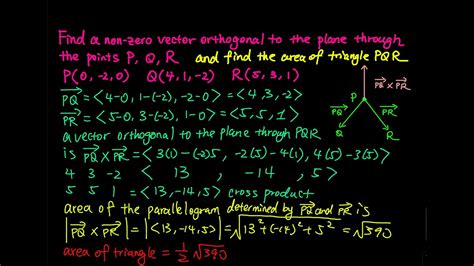 Find a non-zero vector orthogonal to the plane through
the points P, Q, R and find the area of triangle PQR
P(0, -2, 0) Q(4, 1, -2) R(5, 3, 1)
PQ = <4-0, 1-(-2), -2-0> = <4, 3, -2>
PR = <5-0, 3-(-2), 1-0> = <5, 5, 1>
a vector orthogonal to the plane through PQR
is PQ × PR = < 3(1) - (-2)5, -2(5) - 4(1), 4(5) - 3(5)>
4 3 -2 = < 13, -14, 5 >
5 5 1 = <13, -14, 5> cross product
area of the parallelogram determined by PQ and PR is
|PQ × PR| = |<13, -14, 5>| = √13² + (-14)² + 5² = √390
area of triangle = 1/2 √390
PQ × PR
P
PQ
PR
Q
R